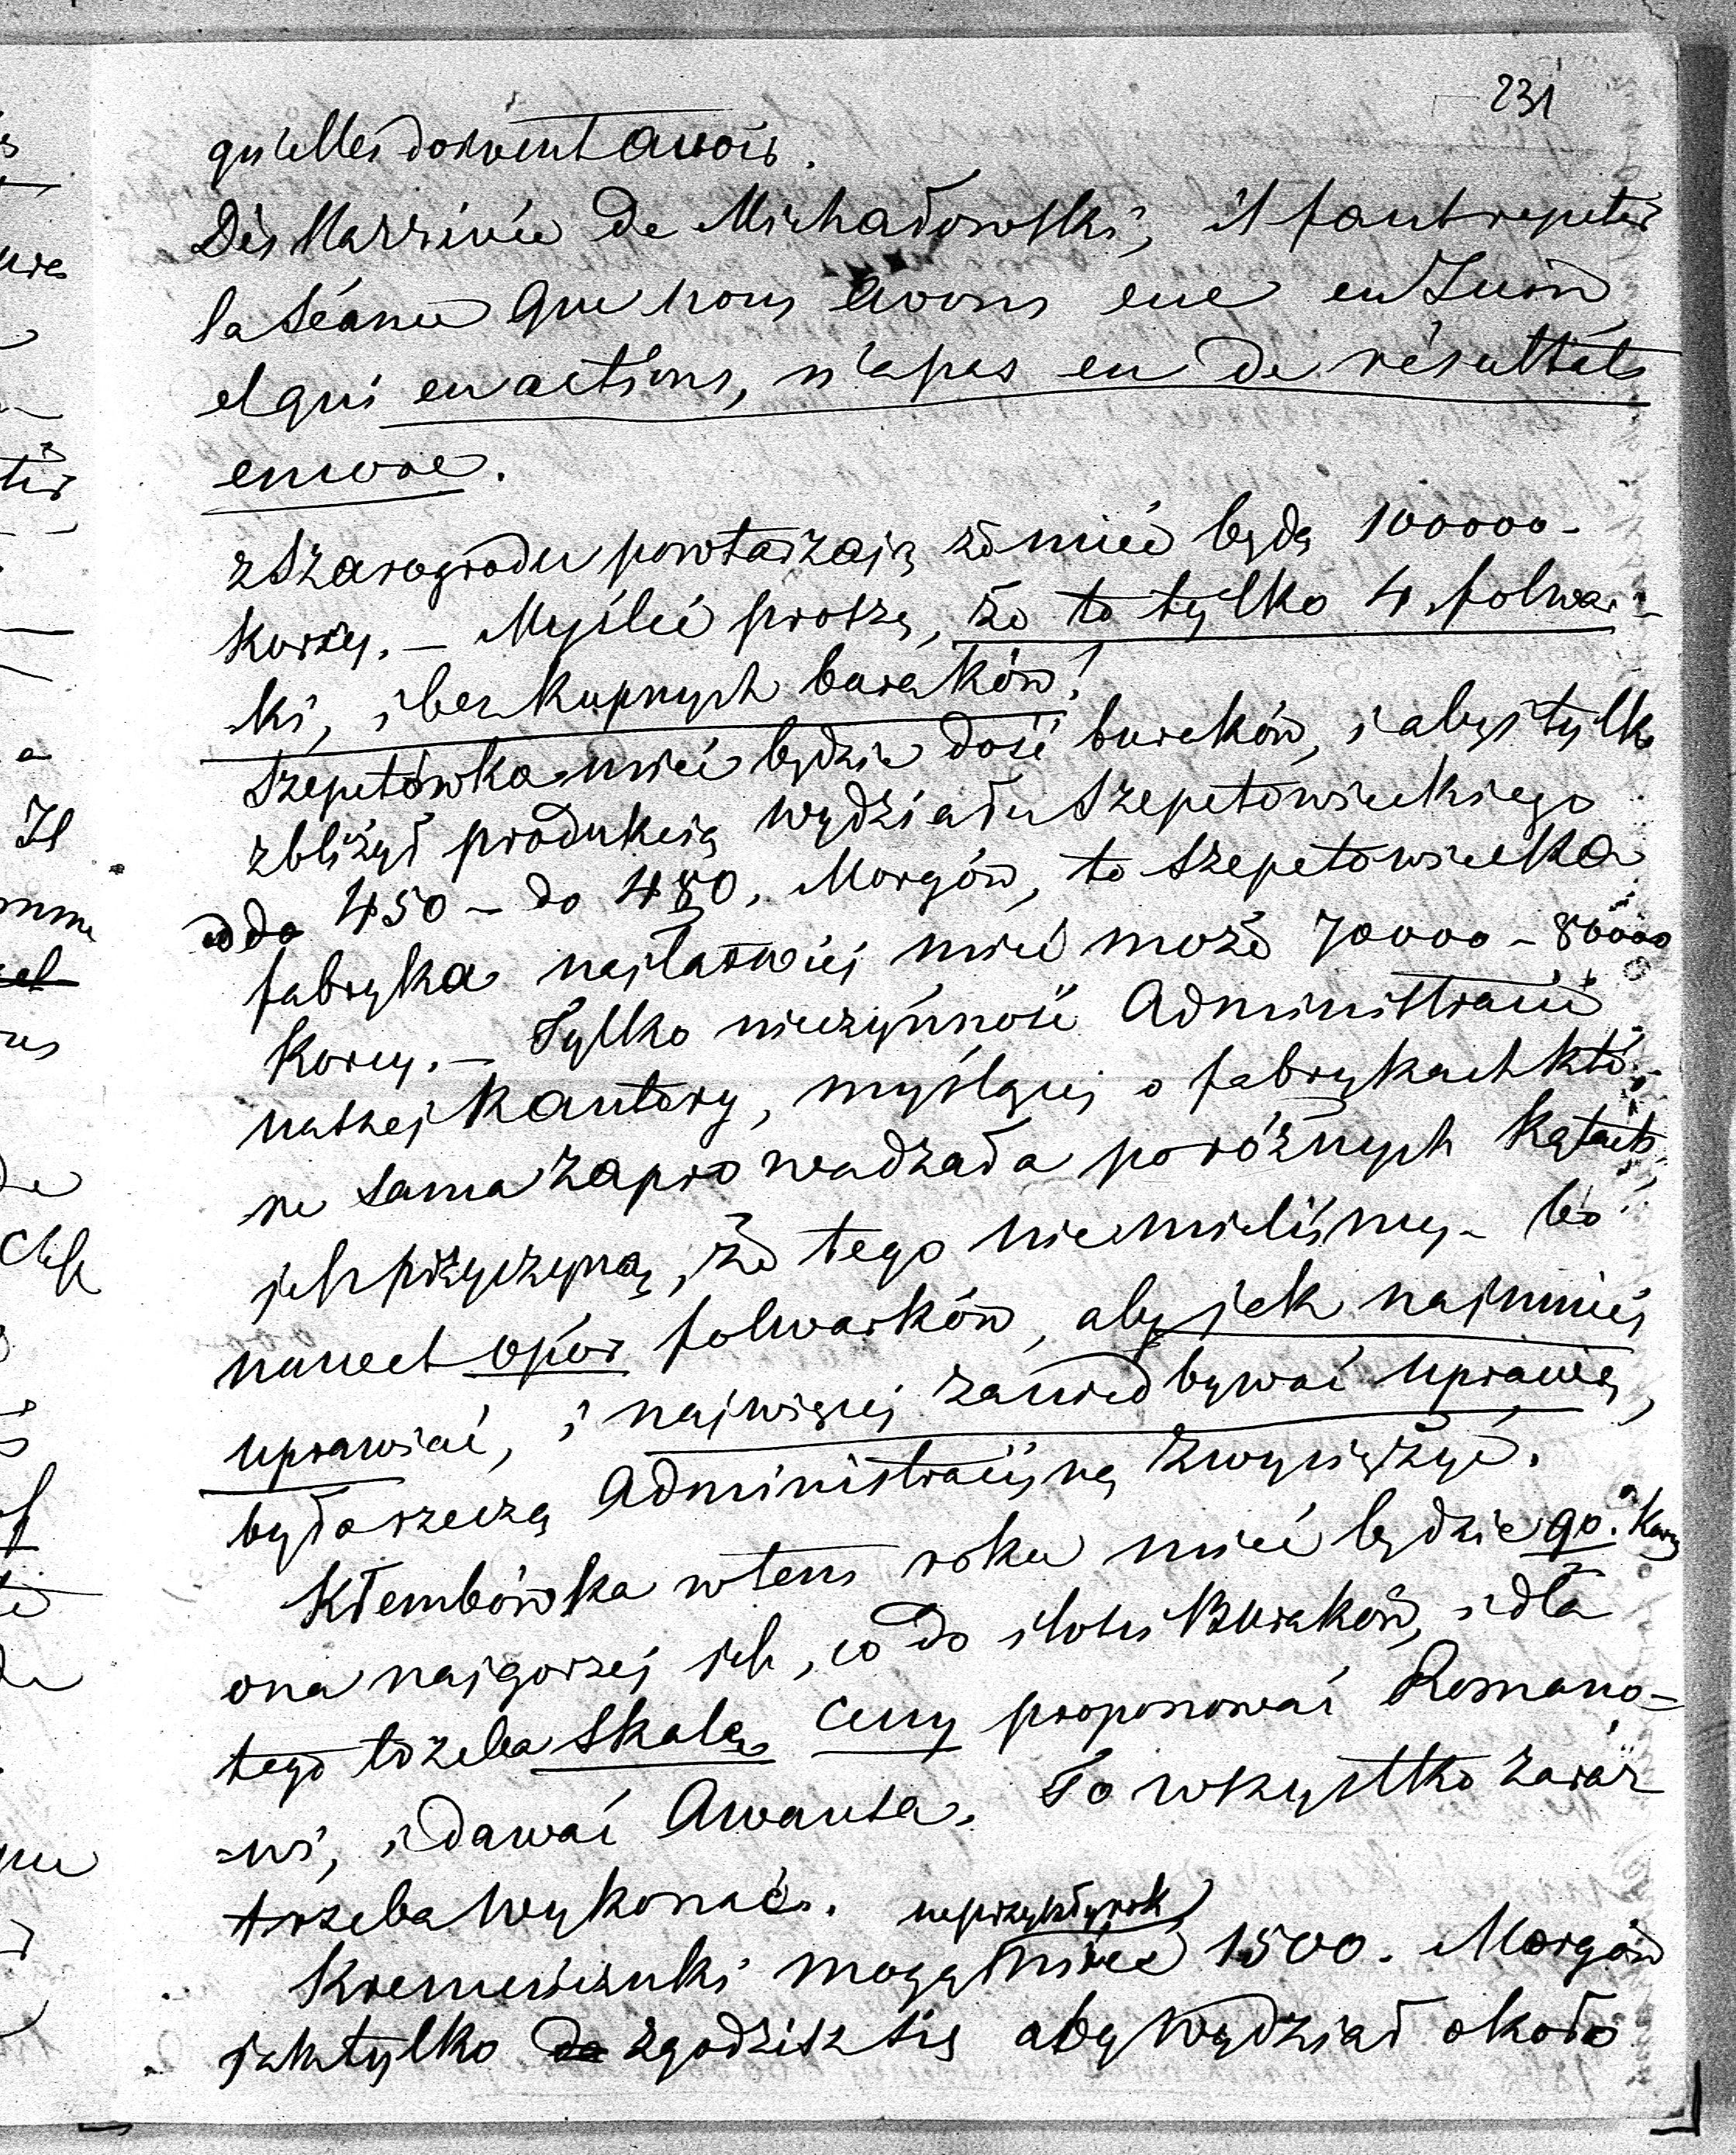 231
qu'elles doivent avoir.
Dès l'arrivée de Michałowski, il faut repeter
la séance que nous avons eue en Juin
et qui en actions, n'a pas eu de résultats
encore.
z Szarogrodu powtarzają że mieć będą 100000-
korcy. – Myśleć proszę, że to tylko 4. folwar-
ki, i bez kupnych buraków!
Szepetówka mieć będzie dość buraków, i abyś tylko
zbliżył produkcią wydziału Szepetowieckiego
do 450 – do 480. Morgów, to Szepetowiecka
fabryka najłatwiej mieć może 70000 – 80000
korcy. – Tylko nieczynność Administracii
naszej Kantory, myślącej o fabrykach któ-
re sama zaprowadzała po różnych kątach
jest przyczyną, że tego nie mieliśmy – bo
nawet opór folwarków, aby jak najmniej
uprawiać, i najwięcej zaniedbywać uprawę,
było rzeczą Administracijną zwyciężyć.
Kłembówka w tem roku mieć będzie 90. Korcy
ona najgorzej jest, co do ilości Buraków, i dla
tego trzeba skalę Ceny proponować Romano-
=wi, i dawać Awansa. To wszystko zaraz
trzeba wykonać.
na przyszły rok
Kremienczuki mogą mieć 1500. Morgów
jak tylko zgodzisz się aby wydział około